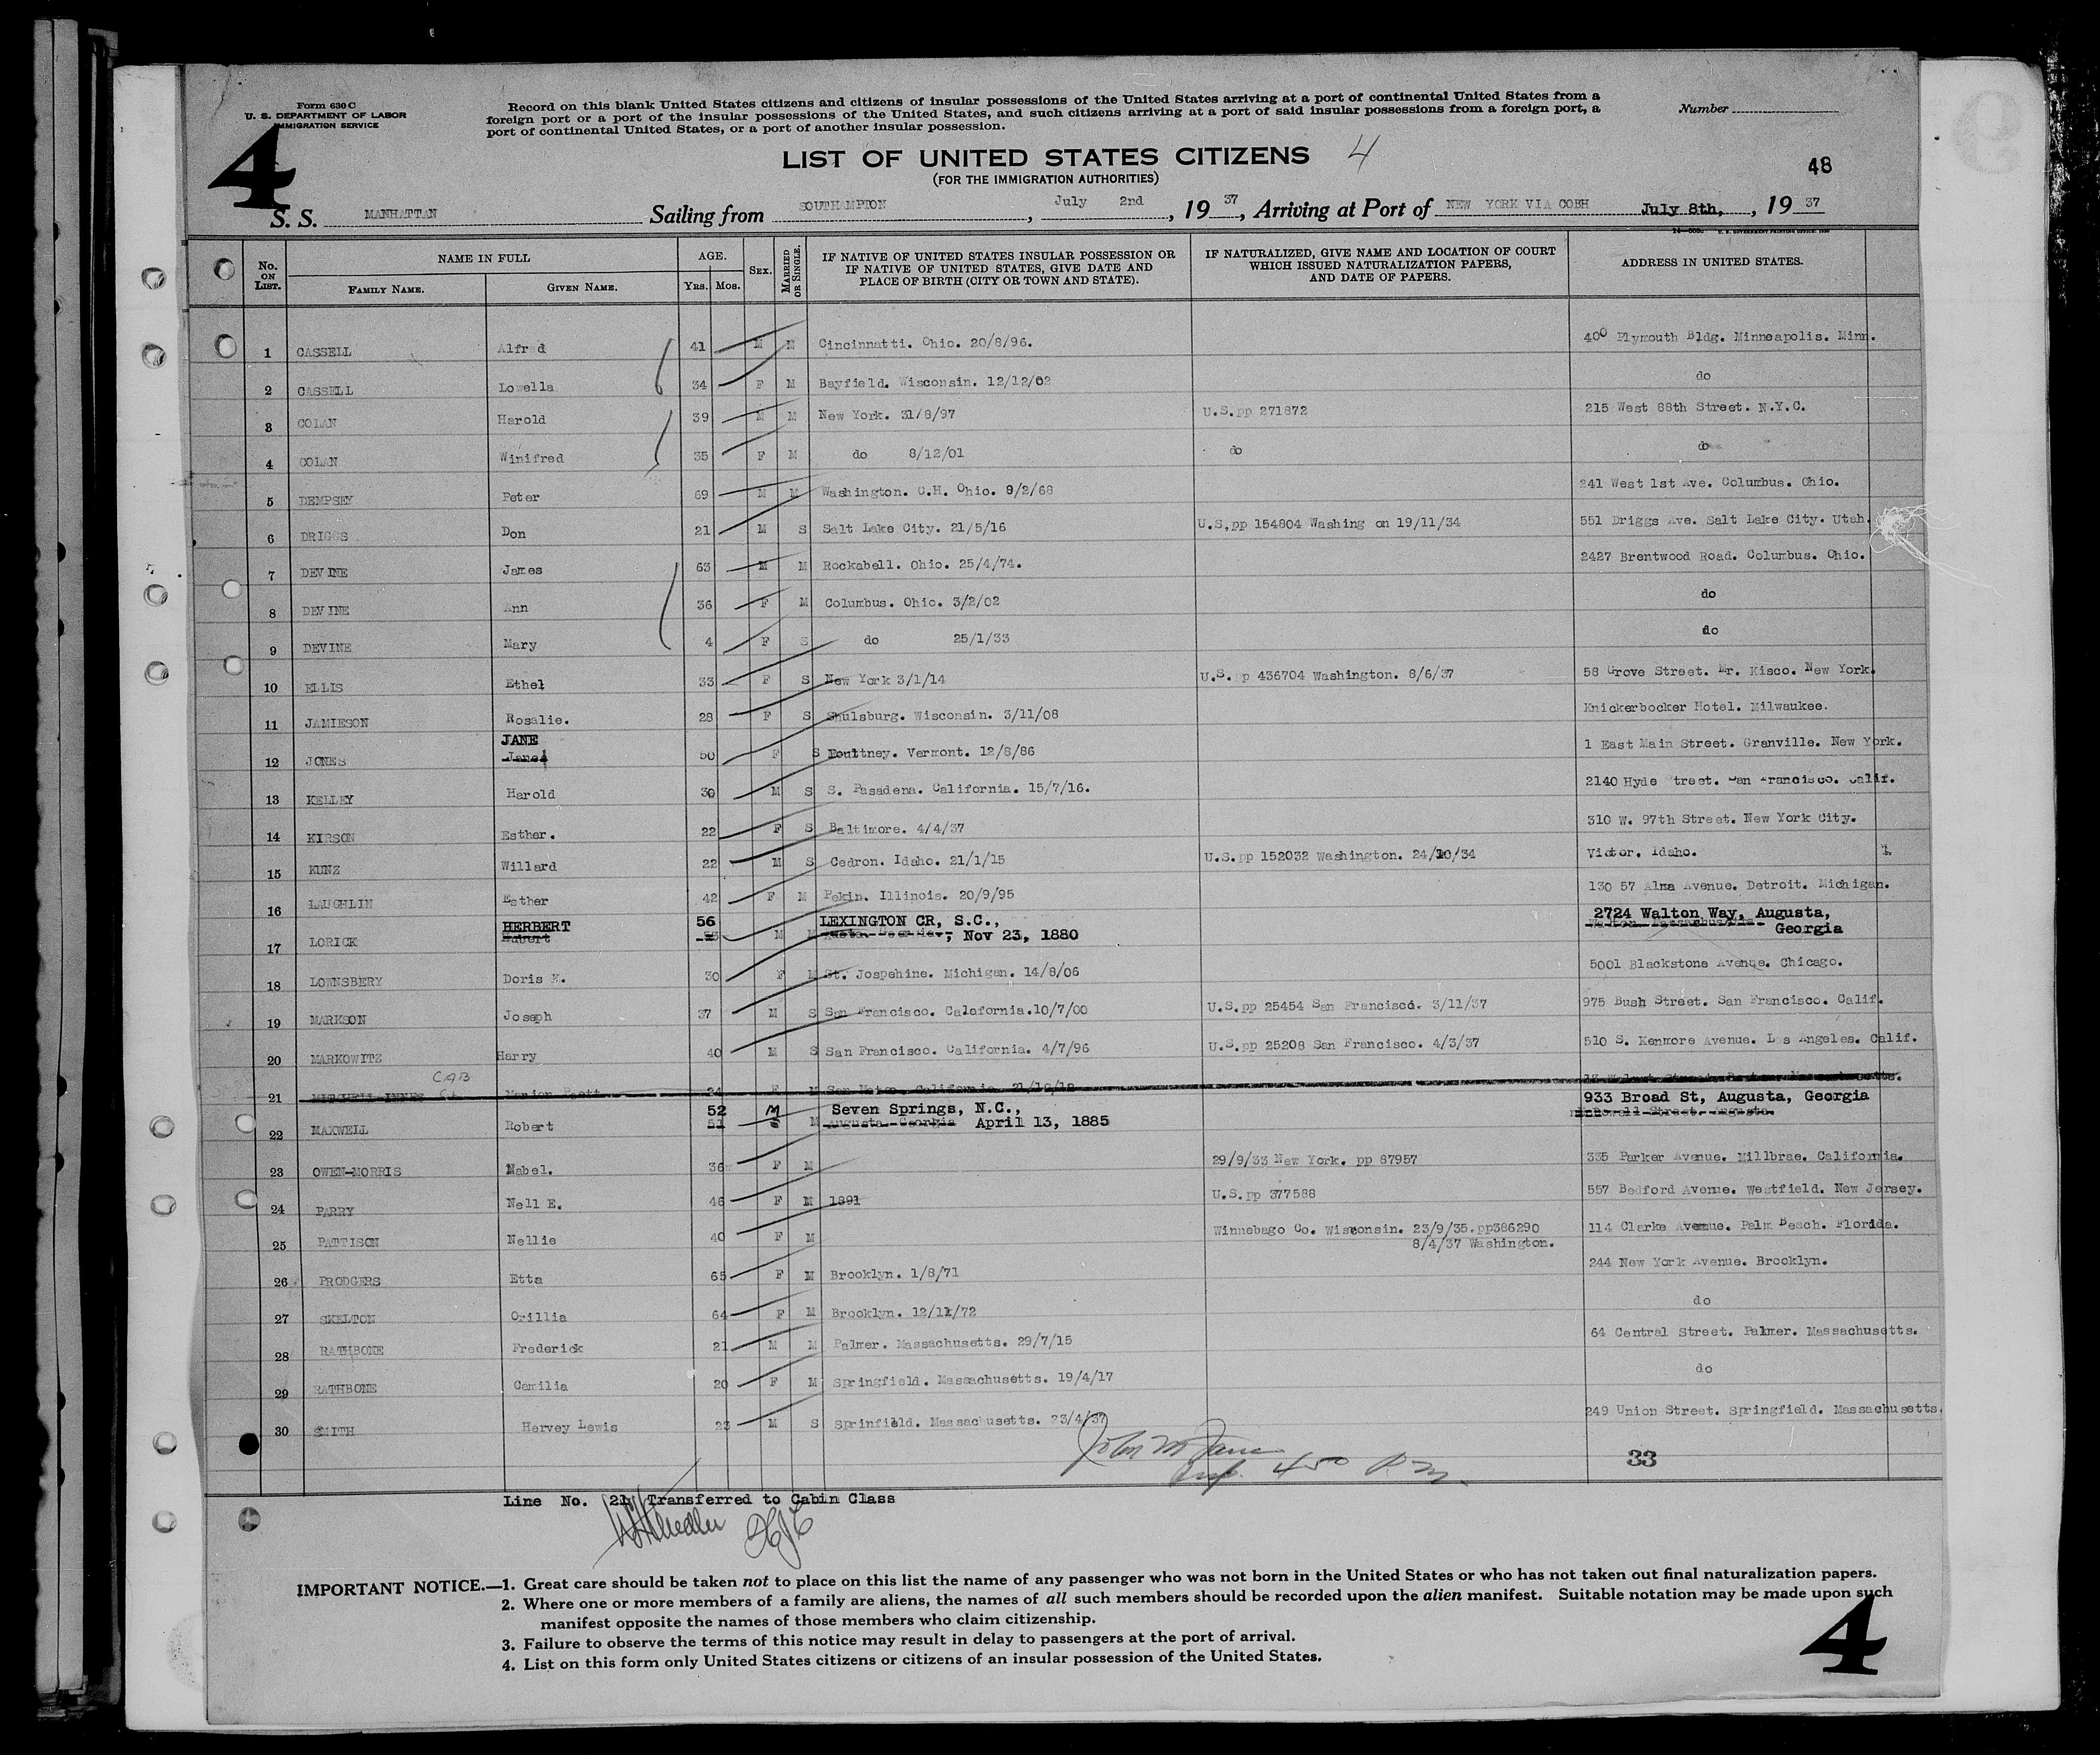 Form 630 C
U. S. DEPARTMENT OF LABOR
IMMIGRATION SERVICE
4
Record on this blank United States citizens and citizens of insular possessions of the United States arriving at a port of continental United States from a
foreign port or a port of the insular possessions of the United States, and such citizens arriving at a port of said insular possessions from a foreign port, a
port of continental United States, or a port of another insular possession.
Number
LIST OF UNITED STATES CITIZENS 4
(FOR THE IMMIGRATION AUTHORITIES)
48
S. S. MANHATTAN Sailing from SOUTHAMPTON, July 2nd, 19 37, Arriving at Port of NEW YORK VIA COBH July 8th, , 19 37
No. ON LIST. NAME IN FULL FAMILY NAME. GIVEN NAME. AGE. YRS. MOS. SEX. MARRIED OR SINGLE. IF NATIVE OF UNITED STATES INSULAR POSSESSION OR IF NATIVE OF UNITED STATES, GIVE DATE AND PLACE OF BIRTH (CITY OR TOWN AND STATE). IF NATURALIZED, GIVE NAME AND LOCATION OF COURT WHICH ISSUED NATURALIZATION PAPERS, AND DATE OF PAPERS. ADDRESS IN UNITED STATES.
1 CASSELL Alfred 41 M M Cincinnatti. Ohio. 20/8/96. 400 Plymouth Bldg. Minneapolis. Minn.
2 CASSELL Lowella 34 F M Bayfield. Wisconsin. 12/12/02 do
3 COLAN Harold 39 M M New York. 31/8/97 U.S.pp 271872 215 West 88th Street. N.Y.C.
4 COLAN Winifred 35 F M do 8/12/01 do do
5 DEMPSEY Peter 69 M M Washington. C.H. Ohio. 9/2/68 241 West 1st Ave. Columbus. Ohio.
6 DRIGGS Don 21 M S Salt Lake City. 21/5/16 U.S.pp 154804 Washing on 19/11/34 551 Driggs Ave. Salt Lake City. Utah.
7 DEVINE James 63 M M Rockabell. Ohio. 25/4/74. 2427 Brentwood Road. Columbus. Ohio.
8 DEVINE Ann 36 F M Columbus. Ohio. 3/2/02 do
9 DEVINE Mary 4 F S do 25/1/33 do
10 ELLIS Ethel 33 F S New York 3/1/14 U.S.pp 436704 Washington. 8/6/37 58 Grove Street. Mr. Kisco. New York.
11 JAMIESON Rosalie. 28 F S Shulsburg. Wisconsin. 3/11/08 Knickerbocker Hotel. Milwaukee.
JANE
12 JONES Janei 50 F S Poultney. Vermont. 12/8/86 1 East Main Street. Granville. New York.
13 KELLEY Harold 30 M S S. Pasadena. California. 15/7/16. 2140 Hyde Street. San Francisco. Calif.
14 KIRSON Esther. 22 F S Baltimore. 4/4/37 310 W. 97th Street. New York City.
15 KUNZ Willard 22 M S Cedron. Idaho. 21/1/15 U.S.pp 152032 Washington. 24/10/34 Victor. Idaho.
16 LAUGHLIN Esther 42 F M Pekin. Illinois. 20/9/95 130 57 Alma Avenue. Detroit. Michigan.
HERBERT 56 LEXINGTON CR, S.C., 2724 Walton Way, Augusta,
17 LORICK Hubert M M Nov 23, 1880 Georgia
18 LOWNSBERY Doris E. 30 F M St. Jospehine. Michigan. 14/8/06 5001 Blackstone Avenue. Chicago.
19 MARKSON Joseph 37 M S San Francisco. Calafornia.10/7/00 U.S.pp 25454 San Francisco. 3/11/37 975 Bush Street. San Francisco. Calif.
20 MARKOWITZ Harry 40 M S San Francisco. California. 4/7/96 U.S.pp 25208 San Francisco. 4/3/37 510 S. Kenmore Avenue. Los Angeles. Calif.
CAB
21 MITCHELL INNES Marion 24 F M San Mateo. California
52 M Seven Springs, N.C., 933 Broad St, Augusta, Georgia
22 MAXWELL Robert 51 M Augusta Georgia April 13, 1885
23 OWEN-MORRIS Mabel. 36 F M 29/9/33 New York. pp 87957 335 Parker Avenue. Millbrae. California.
24 PARRY Nell E. 46 F M 1891 U.S.pp 377588 557 Bedford Avenue. Westfield. New Jersey.
25 PATTISON Nellie 40 F M Winnebago Co. Wisconsin. 23/9/35.pp386290 114 Clarke Avenue. Palm Beach. Florida.
8/4/37 Washington.
26 PRODGERS Etta 65 F M Brooklyn. 1/8/71 244 New York Avenue. Brooklyn.
27 SKELTON Orillia 64 F M Brooklyn. 12/11/72 do
28 RATHBONE Frederick 21 M M Palmer. Massachusetts. 29/7/15 64 Central Street. Palmer. Massachusetts.
29 RATHBONE Camilia 20 F M Springfield. Massachusetts. 19/4/17 do
30 SMITH Hervey Lewis 23 M S Sprinfield. Massachusetts. 23/4/37 249 Union Street. Springfield. Massachusetts.
33
Line No. 21 Transferred to Cabin Class
IMPORTANT NOTICE.—1. Great care should be taken not to place on this list the name of any passenger who was not born in the United States or who has not taken out final naturalization papers.
2. Where one or more members of a family are aliens, the names of all such members should be recorded upon the alien manifest. Suitable notation may be made upon such
manifest opposite the names of those members who claim citizenship.
3. Failure to observe the terms of this notice may result in delay to passengers at the port of arrival.
4. List on this form only United States citizens or citizens of an insular possession of the United States.
4